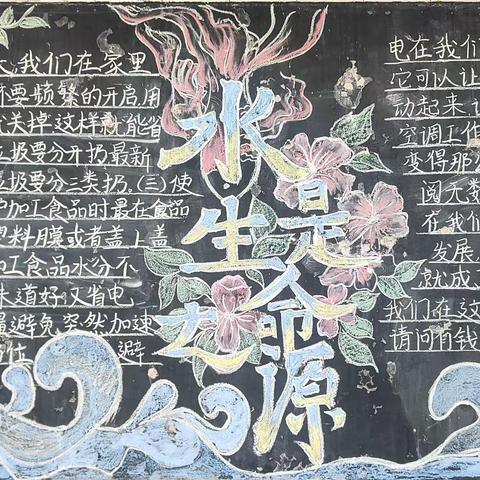 我们在家里
要频繁的开启,用
关掉 这样就能省
圾要分开扔最新
圾要分三类扔。(三)使
加工食品时最在食品
塑料膜或者盖上盖
加工食品水分不
味道好,又省电
量避免突然加速
避
水是生命之源
电在我们
它可以让
动起来
空调工作
变得那
阅无数
在我们
发展
就成
我们在这
请问自钱